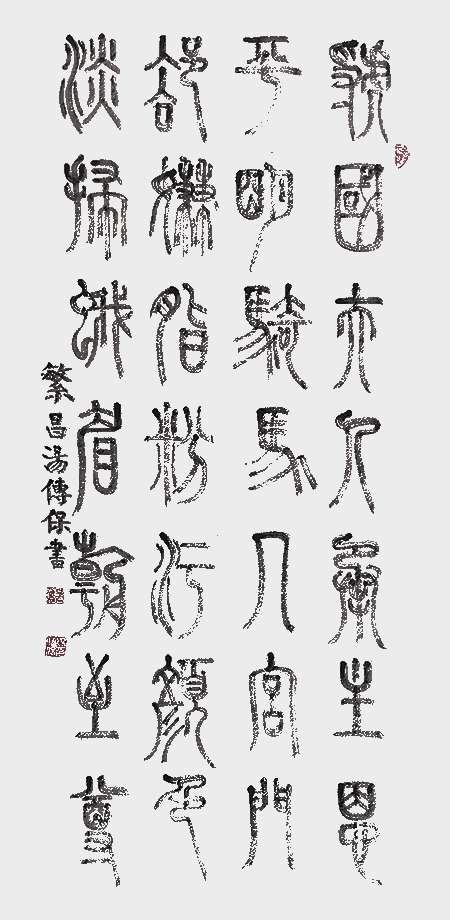 虢國夫人承主恩
平明騎馬入宮門
卻嫌脂粉污顏色
淡掃蛾眉朝至尊
繁昌湯傳保書